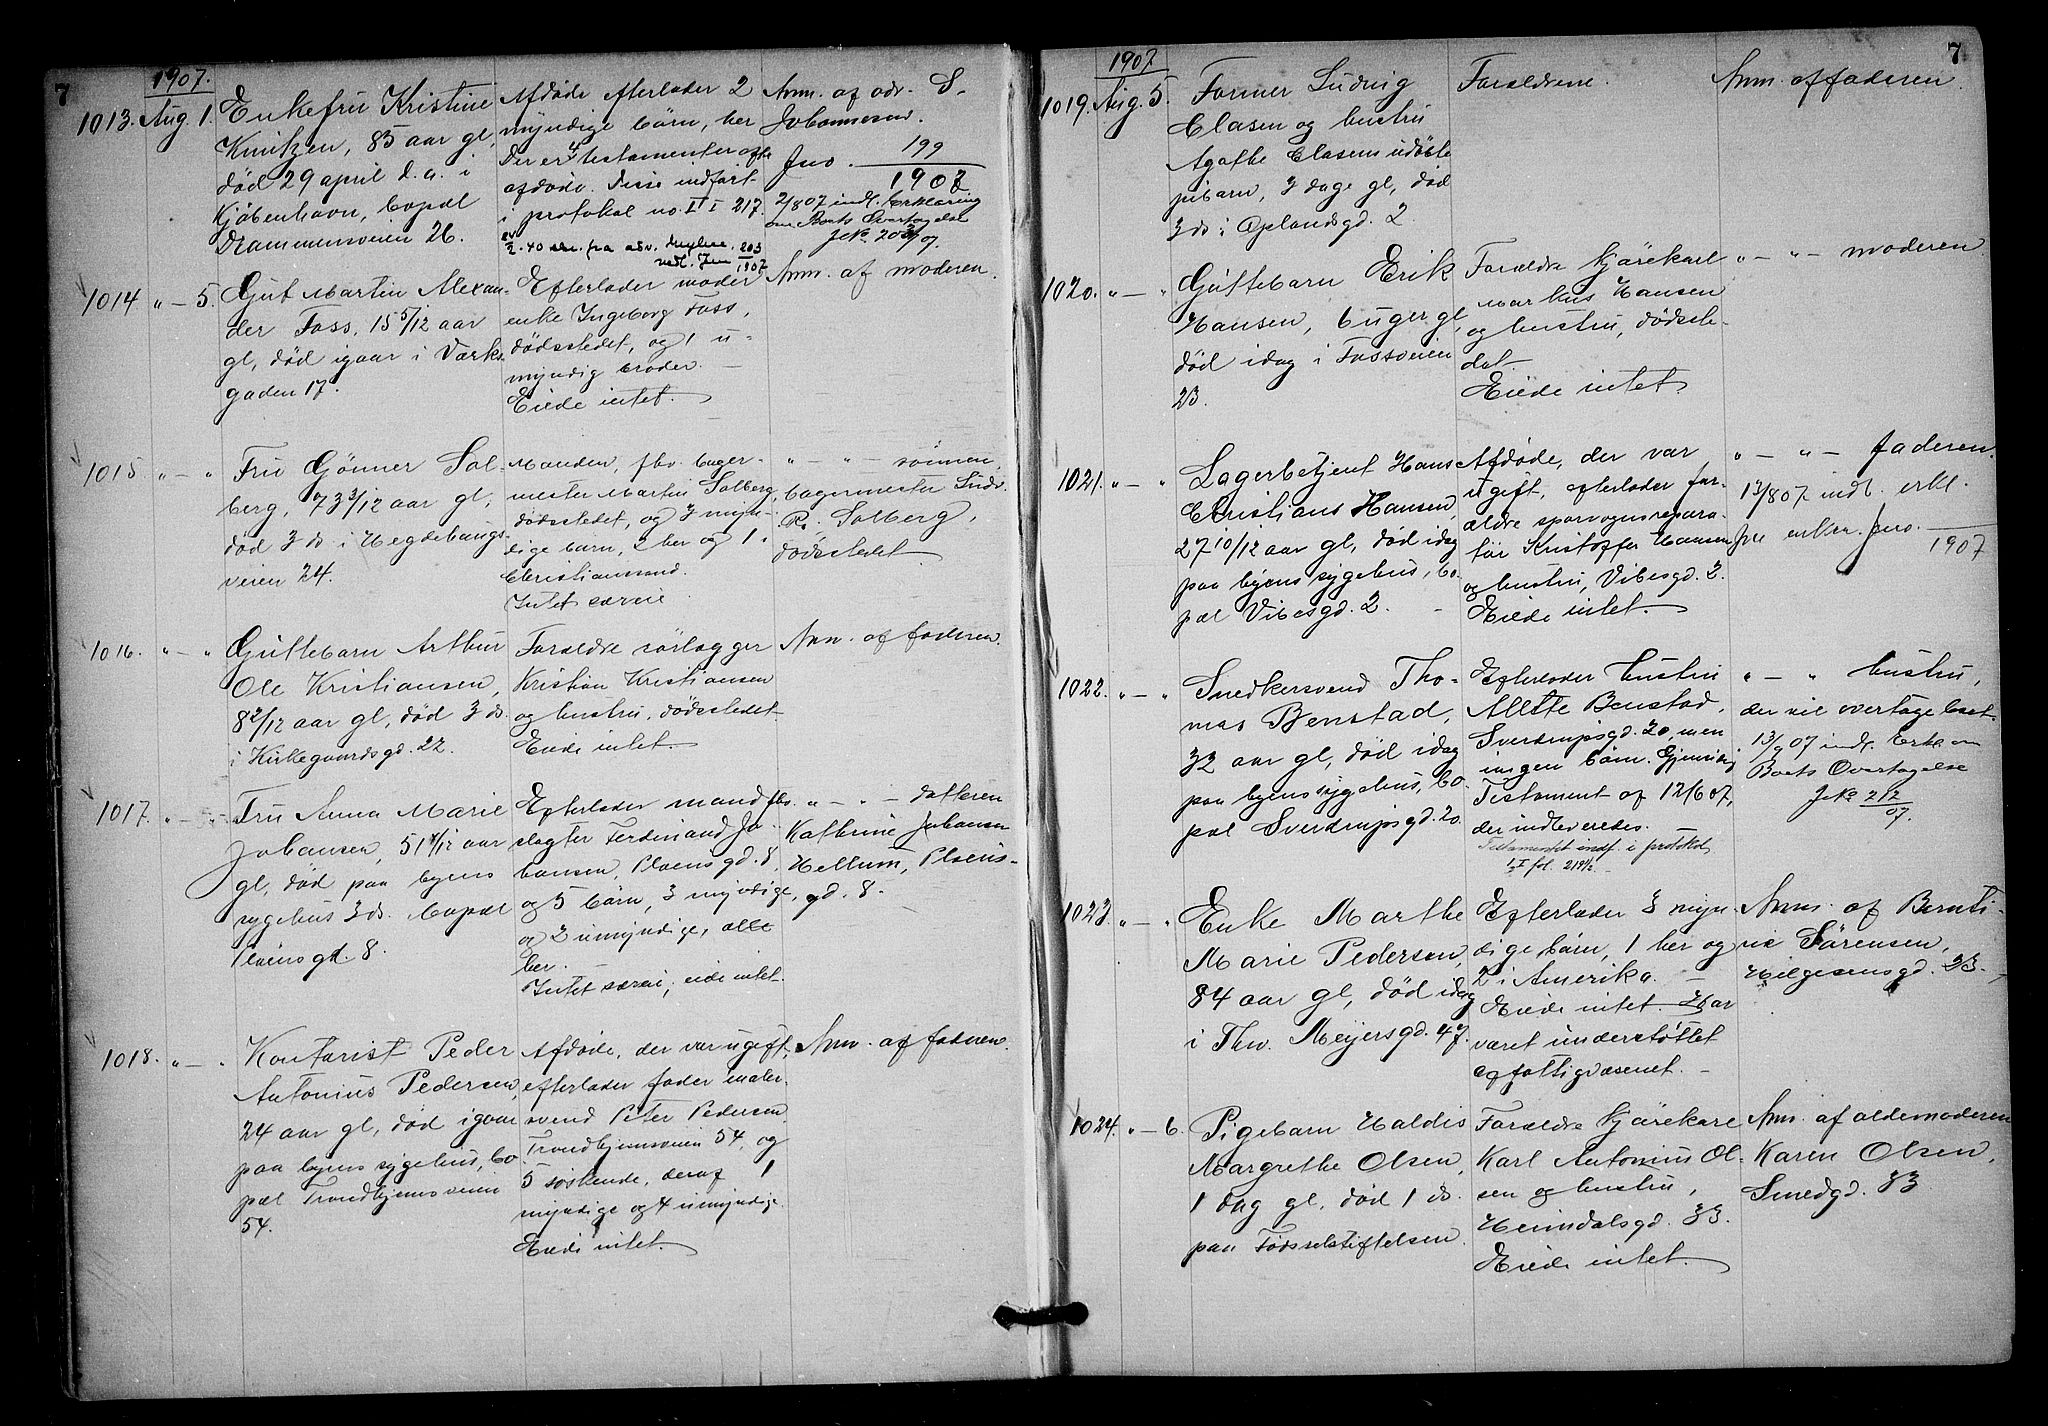 7
1907.
1013. Aug. 1.
Enkefru Kristine
Knutzen, 85 aar gl,
död 29 april d. a. i
Kjöbenhavn, bopæl
Drammensveien 26.
Afdöde efterlader 2
myndige börn, her
Der er 4 testamenter efter
afdöde. Disse indfört
i protokol no. II I 217.
40 øre fra adv.
vedl. Jno 203
1907
Anm. af adv. S.
Johannesen.
Jno. 199
1907
2/8 07 indl. Erklæring
om Boets Overtagelse
Jno. 203/07.
1014 " — 5.
Gut Martin Alexan-
der Foss, 15 5/12 aar
gl, död igaar i Værks
gaden 17.
Efterlader moder
enke Ingeborg Foss,
dödsstedet, og 1 u-
myndig broder. —
Eiede intet.
Anm. af moderen.
1015. " — "
Fru Gönner Sol-
berg, 73 3/12 aar gl,
död 3 ds i Hegdehaugs-
veien 24.
Manden, fhv. bager-
mester Martin Solberg,
dödsstedet, og 3 myn-
dige börn, 2 her og 1 i
Christianssand.
Intet særeie.
" " — sönnen,
bagermester Ludv.
R. Solberg,
dödsstedet
1016. " — "
Guttebarn Arthur
Ole Kristiansen,
8 2/12 aar gl, död 3 ds.
i Kirkegaardsgd. 22.
Forældre rörlægger
Kristian Kristiansen
og hustru, dödsstedet
Eiede intet.
Anm. af faderen.
1017. " — "
Fru Anna Marie
Johansen, 51 4/12 aar
gl, död paa byens
sygehus 3 ds. bopæl
Pløensgd. 8.
Efterlader mand fhv.
slagter Ferdinand Jo-
hansen, Pløensgd. 8,
og 5 börn, 3 myndige,
og 2 umyndige, alle
her. —
Intet særeie, eiede intet.
" — " — datteren
Kathrine Johansen
Hellum, Pløens-
gd. 8.
1018. " — "
Kontorist Peder
Antonius Pedersen,
24 aar gl, död igaar
paa byens sygehus, bo-
pæl Trondhjemsveien
54.
Afdöde, der var ugift,
efterlader fader maler-
svend Peter Pedersen,
Trondhjemsveien 54, og
5 söskende, deraf 1
myndige og 4 umyndige.
Eiede intet.
Anm. af faderen.
7
1907
1019. Aug. 5.
Former Ludvig
Clasen og hustru
Agathe Clasens udöbte
pikebarn, 3 dage gl, död
3 ds i Oplandsgd. 2.
Forældrene.
Anm. af faderen.
1020. " — "
Guttebarn Erik
Hansen, 6 uger gl,
död idag i Fossveien
23.
Forældre kjörekarl
Markus Hansen
og hustru, dödsste-
det.
Eiede intet.
" — " — moderen
1021. " — "
Lagerbetjent Hans
Christians Hansen,
27 10/12 aar gl, död idag
paa byens sygehus, bo-
pæl Vibesgd. 2. —
Afdöde, der var
ugift, efterlader for-
ældre sporvognsrepara-
tör Kristoffer Hansen
og hustru, Vibesgd. 2.
Eiede intet.
" — " — faderen.
13/8 07 indl. erkl.
fra enken. Jno.
1907
1022. " — "
Snedkersvend Tho-
mas Benstad,
32 aar gl, död idag
paa byens sygehus, bo-
pæl Sverdrupsgd. 20.
Efterlader hustru
Allette Benstad,
Sverdrupsgd. 20, men
ingen börn. Gjensidig
Testament af 12/6 07,
der indleveredes.
Testamentet indf. i protokol
I fol. 219 1/2.
" — " hustru,
der vil overtage boet.
13/9 07 indl. Erkl. om
Boets Overtagelse
Jno 212
07.
1023. " — "
Enke Marthe
Marie Pedersen,
84 aar gl, död idag
i Thv. Meyersgd. 47.
Efterlader 3 myn-
dige börn, 1 her og
2 i Amerika. —
Eiede intet. Har
været understöttet
af fattigvæsenet. —
Anm. af Bernti-
ne Sörensen,
Helgesensgd. 23.
1024. " — 6.
Pigebarn Haldis
Margrethe Olsen,
1 dag gl, död 1 ds.
paa Födselsstiftelsen.
Forældre kjörekarl
Karl Antonius Ol-
sen og hustru,
Heimdalsgd. 33.
Eiede intet.
Anm. af oldemoderen
Karen Olsen,
Smedgd. 33